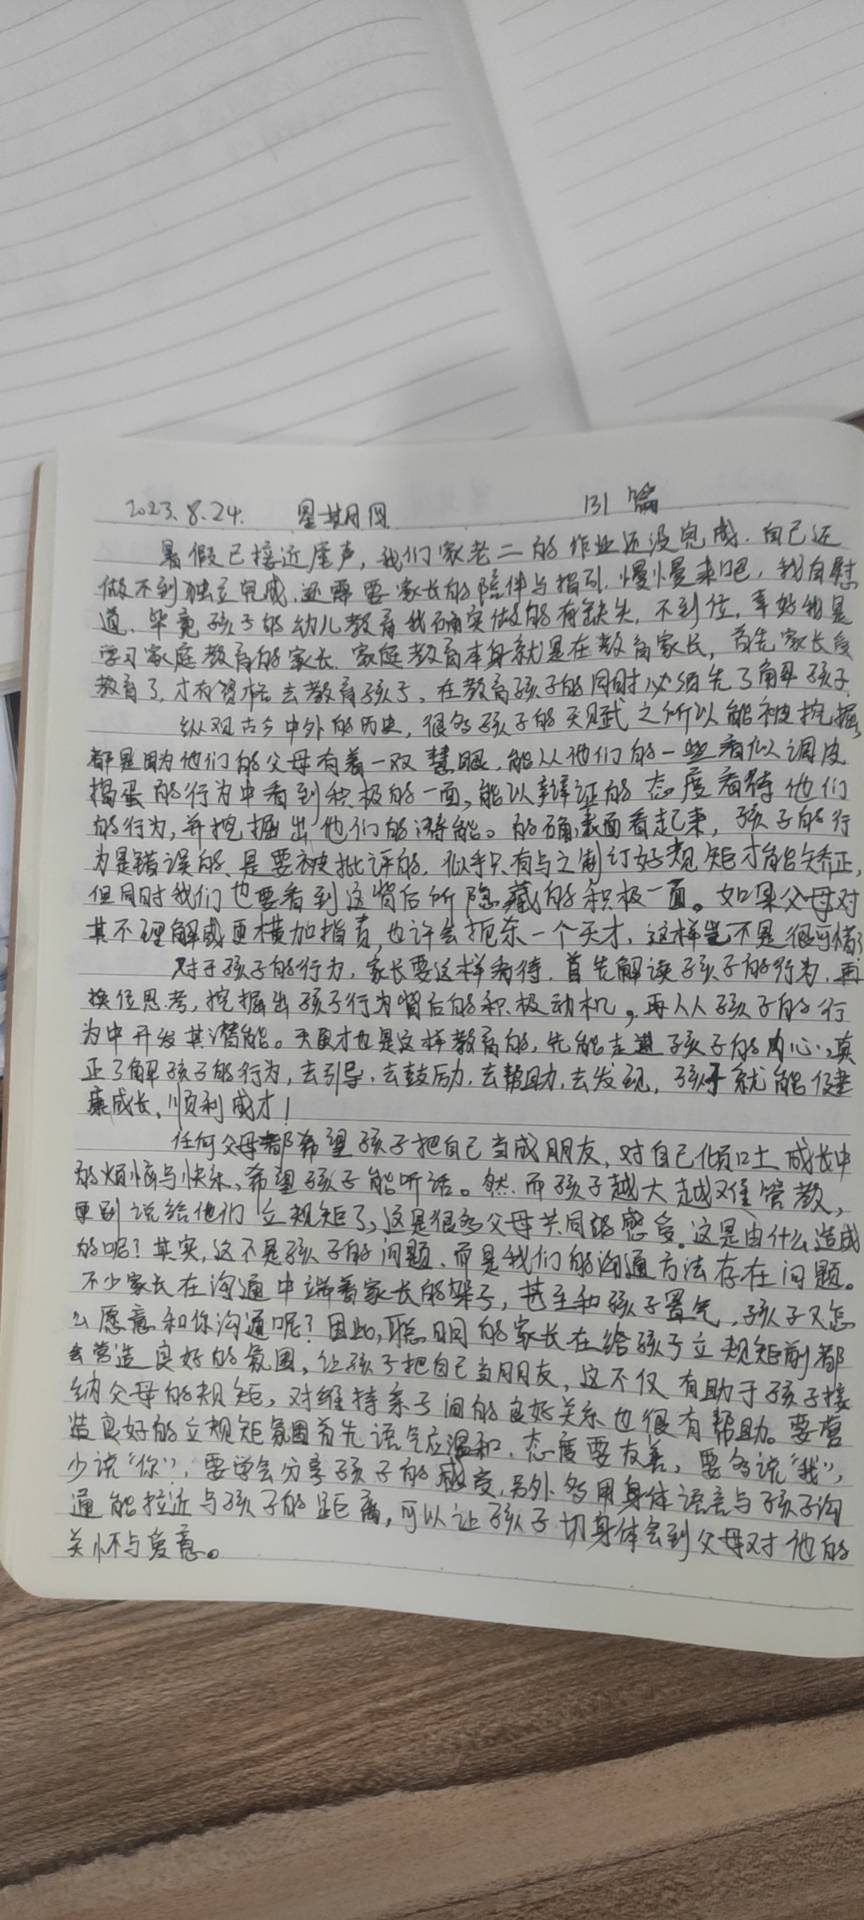 2023.8.24. 星期四 131篇
暑假已接近尾声,我们家老二的作业还没完成.自己还
做不到独立完成.还需要家长的陪伴与指引.慢慢来吧,我自慰
道.毕竟孩子的幼儿教育我确实做的有缺失,不到位,幸好我是
学习家庭教育的家长.家庭教育本身就是在教育家长,首先家长受
教育了,才有资格去教育孩子,在教育孩子的同时必须先了解孩子.
纵观古今中外的历史,很多孩子的天赋之所以能被挖掘,
都是因为他们的父母有着一双慧眼,能从他们的一些看似调皮
捣蛋的行为中看到积极的一面,能以辩证的态度看待他们
的行为,并挖掘出他们的潜能。的确,表面看起来,孩子的行
为是错误的、是要被批评的,似乎只有与之制订好规矩才能矫正,
但同时我们也要看到这背后所隐藏的积极一面。如果父母对
其不理解或更横加指责,也许会扼杀一个天才,这样岂不是很可惜了
对于孩子的行为,家长要这样看待.首先解读孩子的行为,再
换位思考,挖掘出孩子行为背后的积极动机,再从孩子的行
为中开发其潜能。天才也是这样教育的,先能走进孩子的内心,真
正了解孩子的行为,去引导.去鼓励.去帮助.去发现,孩子就能健
康成长,顺利成才!
任何父母都希望孩子把自己当成朋友,对自己倾吐成长中
的烦恼与快乐,希望孩子能听话。然而孩子越大越难管教,
更别说给他们立规矩了,这是很多父母共同的感受.这是由什么造成
的呢?其实,这不是孩子的问题.而是我们的沟通方法存在问题。
不少家长在沟通中端着家长的架子,甚至和孩子置气,孩子又怎
么愿意和你沟通呢?因此,聪明的家长在给孩子立规矩前都
会营造良好的氛围,让孩子把自己当朋友,这不仅有助于孩子接
纳父母的规矩,对维持亲子间的良好关系也很有帮助。要营
造良好的立规矩氛围首先语气应温和.态度要友善,要多说“我”,
少说“你”,要学会分享孩子的感受,另外多用身体语言与孩子沟
通能拉近与孩子的距离,可以让孩子切身体会到父母对他的
关怀与爱意。